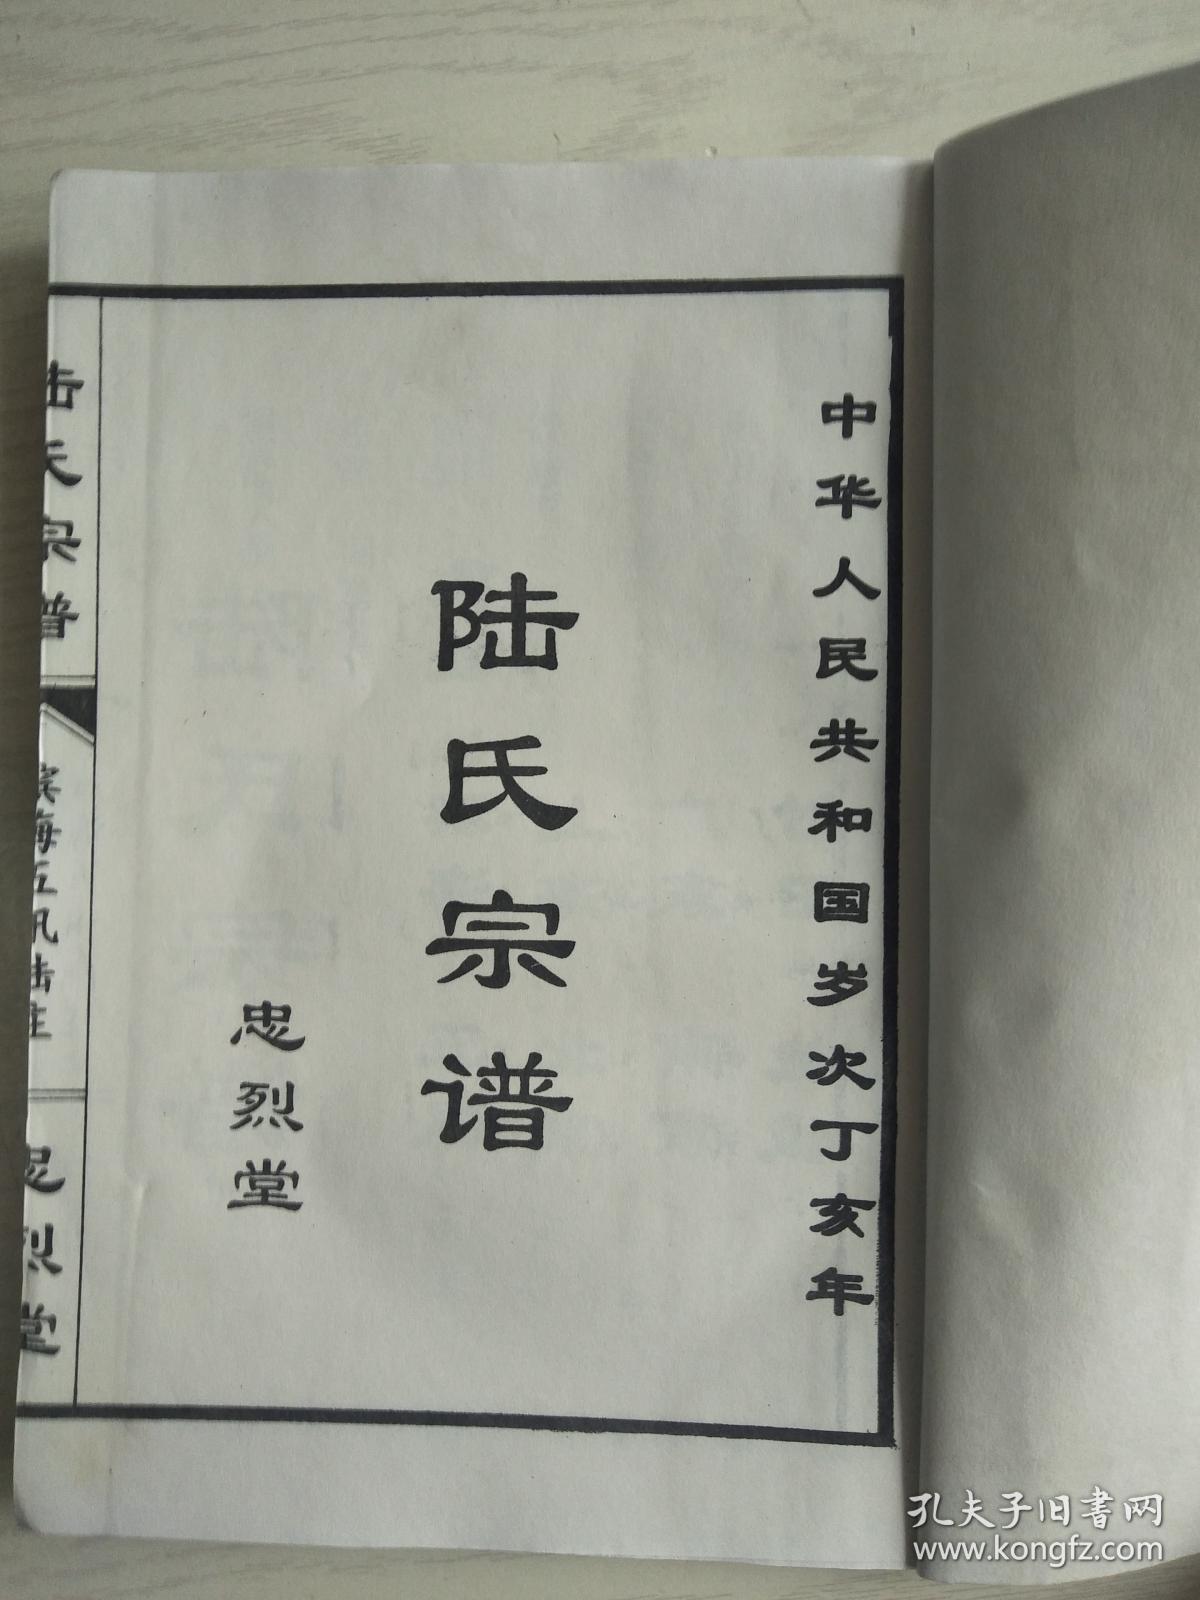 中华人民共和国岁次丁亥年
陆氏宗谱
忠烈堂
陆氏宗谱
滨海五汛陆庄
忠烈堂
孔夫子旧书网
www.kongfz.com